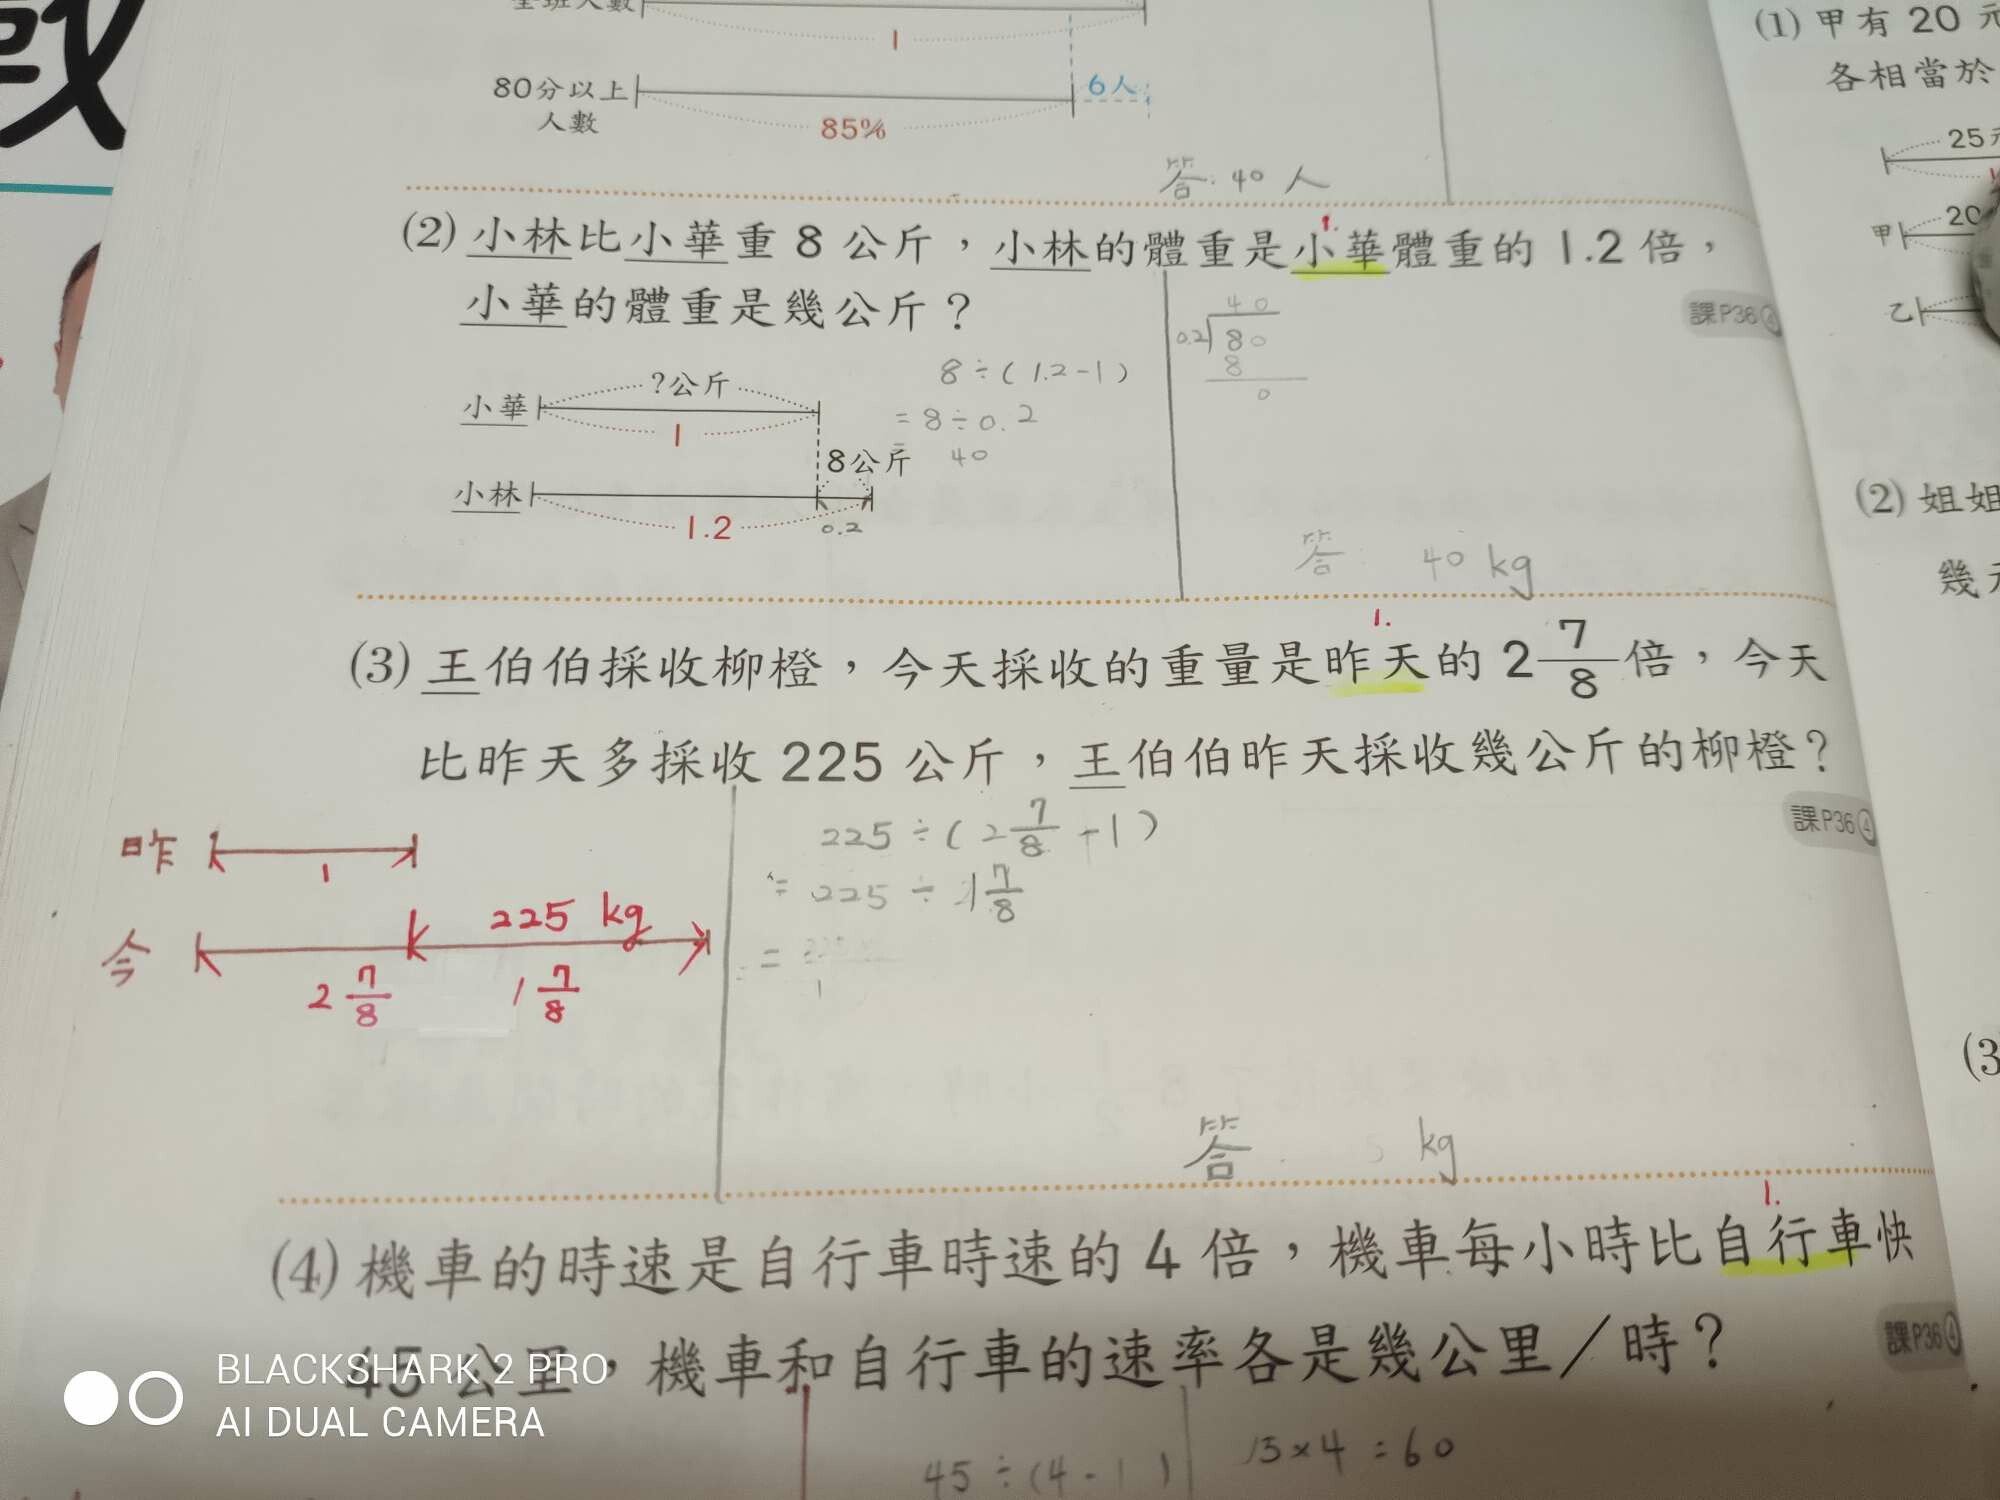 全班人數
1
80分以上
人數
6人
85%
答:40人
(2) 小林比小華重 8 公斤，小林的體重是小華體重的 1.2 倍，
1.
小華的體重是幾公斤？
課P36④
?公斤
小華
1
8公斤
小林
1.2
0.2
8÷(1.2-1)
=8÷0.2
=40
40
0.2 80
8
0
答: 40 kg
1.
(3) 王伯伯採收柳橙，今天採收的重量是昨天的 2 7/8 倍，今天
比昨天多採收 225 公斤，王伯伯昨天採收幾公斤的柳橙？
課P36④
昨
1
今
225 kg
2 7/8
1 7/8
225÷(2 7/8 -1)
=225÷1 7/8
=
答 kg
1.
(4) 機車的時速是自行車時速的 4 倍，機車每小時比自行車快
45 公里，機車和自行車的速率各是幾公里／時？
課P36④
45÷(4-1)
15×4=60
BLACKSHARK 2 PRO
AI DUAL CAMERA
(1) 甲有 20 元
各相當於
25元
甲
20
乙
(2) 姐姐
幾元
(3